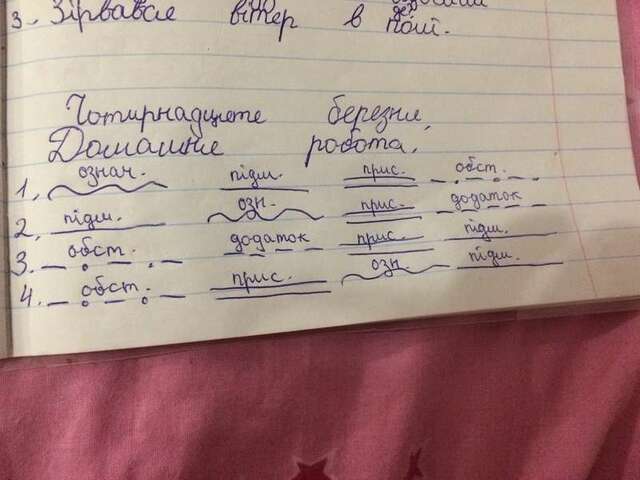 3. Зірвався вітер в полі.
Чотирнадцяте березня.
Домашня робота.
1. означ. підм. прис. обст.
2. підм. озн. прис. додаток
3. обст. додаток прис. підм.
4. обст. прис. озн. підм.